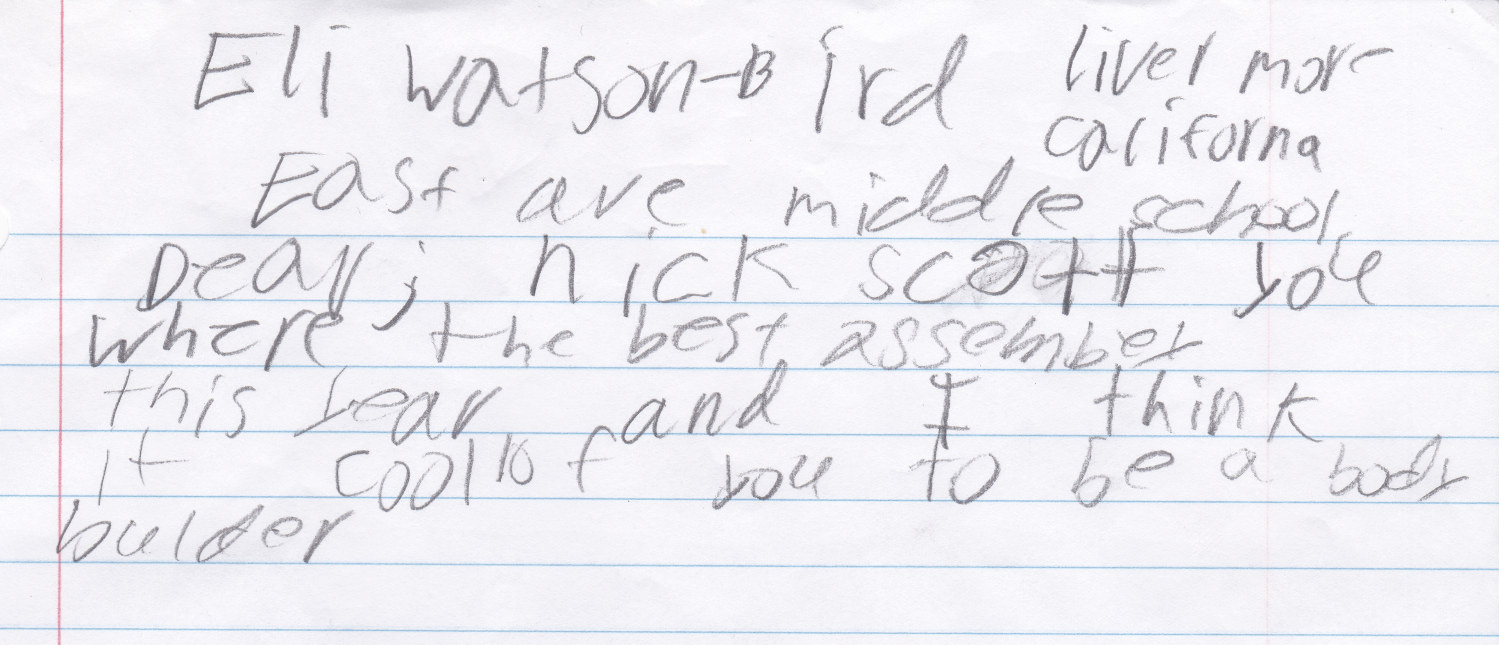 Eli Watson-Bird
liver mor
californa
East ave middle school
Dear, nick scott you
where the best assember
this year and I think
it cool of you to be a body
bulder